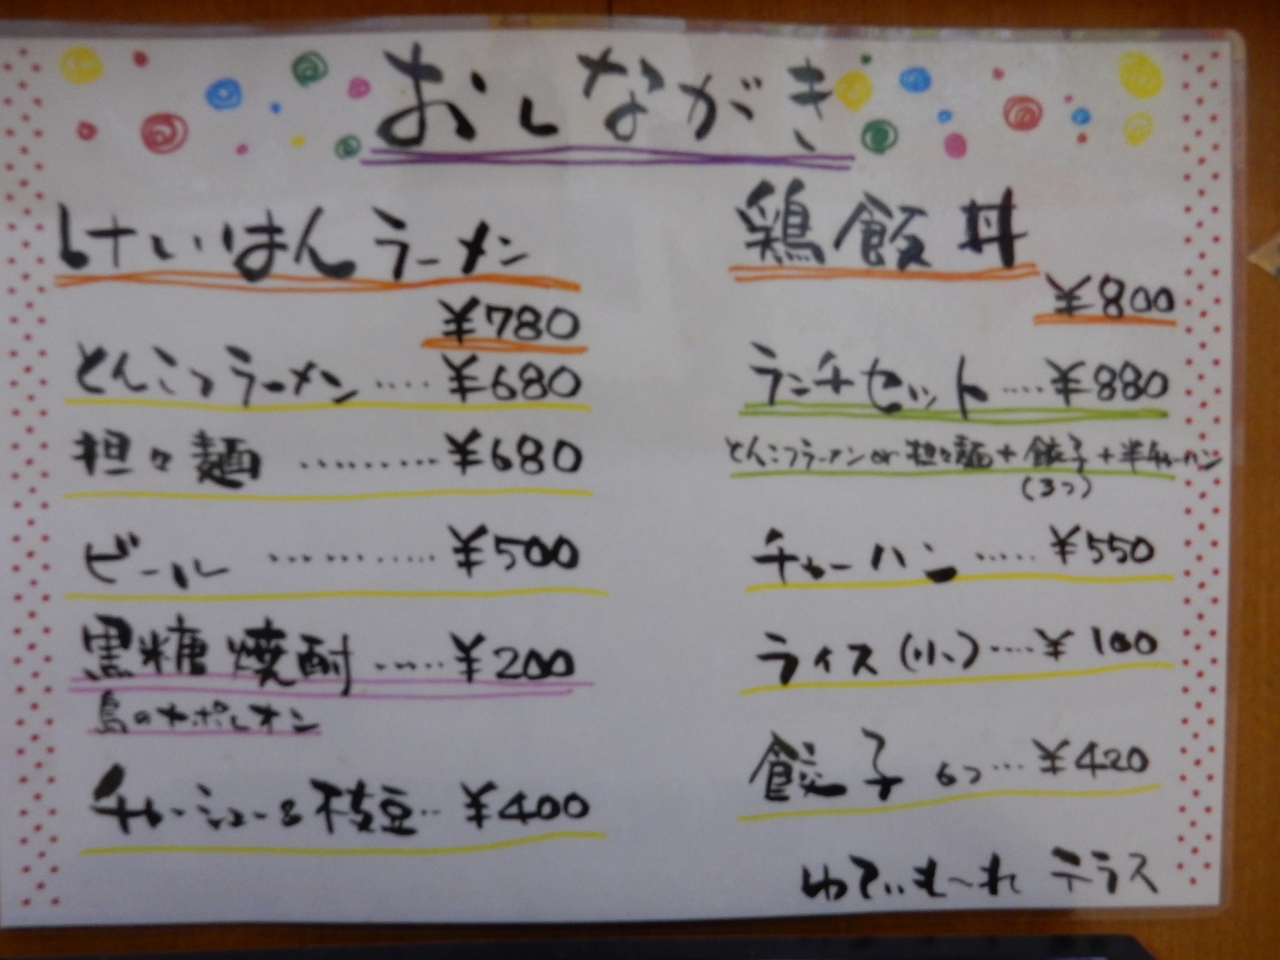 おしながき
けいはんラーメン
¥780
とんこつラーメン‥‥¥680
担々麺 ………¥680
ビール …………¥500
黒糖焼酎 ……¥200
島のナポレオン
チャーシュー&枝豆‥¥400
鶏飯丼
¥800
ランチセット‥‥¥880
とんこつラーメンor担々麺+餃子+半チャーハン
(3つ)
チャーハン ……¥550
ライス(小)‥‥¥100
餃子 6つ…¥420
ゆてぃも〜れ テラス